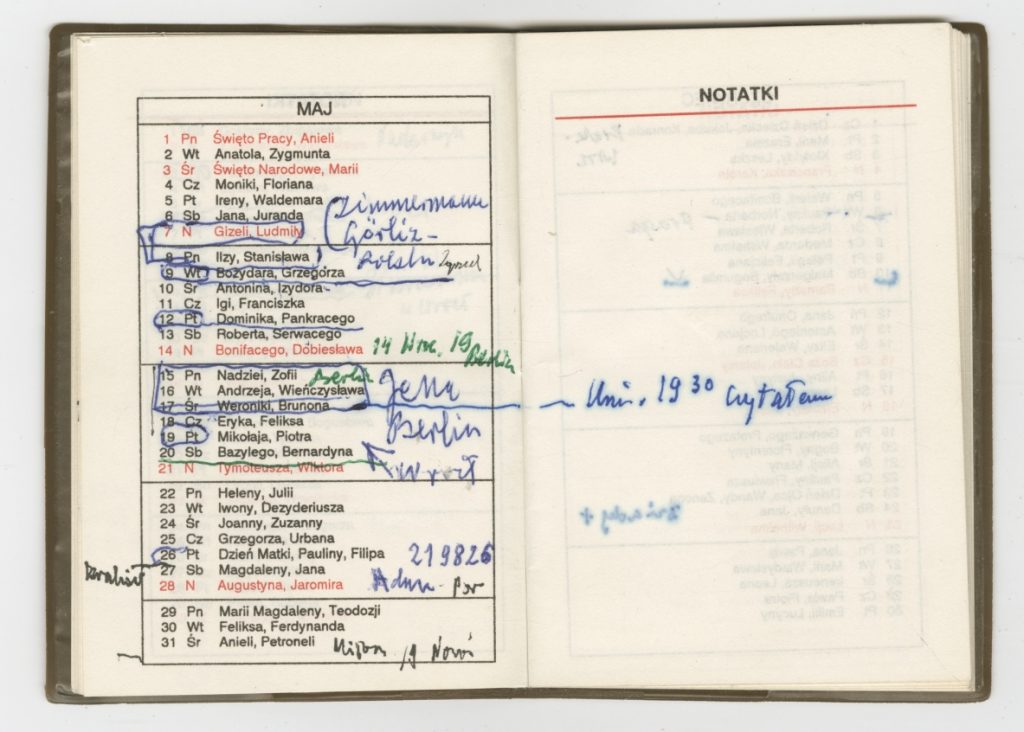 MAJ
1 Pn Święto Pracy, Anieli
2 Wt Anatola, Zygmunta
3 Śr Święto Narodowe, Marii
4 Cz Moniki, Floriana
5 Pt Ireny, Waldemara
6 Sb Jana, Juranda
Zimmermann
7 N Gizeli, Ludmiły
Görliz -
8 Pn Ilzy, Stanisława
9 Wt Bożydara, Grzegórza
10 Śr Antonina, Izydora
11 Cz Igi, Franciszka
12 Pt Dominika, Pankracego
13 Sb Roberta, Serwacego
14 N Bonifacego, Dobiesława 14 Wrc. 19 Berlin
15 Pn Nadziei, Zofii Berlin
16 Wt Andrzeja, Wieńczysława Jena
17 Śr Weroniki, Brunona
18 Cz Eryka, Feliksa Berlin
19 Pt Mikołaja, Piotra
20 Sb Bazylego, Bernardyna
21 N Tymoteusza, Wiktora
22 Pn Heleny, Julii
23 Wt Iwony, Dezyderiusza
24 Śr Joanny, Zuzanny
25 Cz Grzegorza, Urbana
26 Pt Dzień Matki, Pauliny, Filipa 219826
27 Sb Magdaleny, Jana
28 N Augustyna, Jaromira
29 Pn Marii Magdaleny, Teodozji
30 Wt Feliksa, Ferdynanda
31 Śr Anieli, Petroneli
NOTATKI
— Uniw. 19 30 czytałem